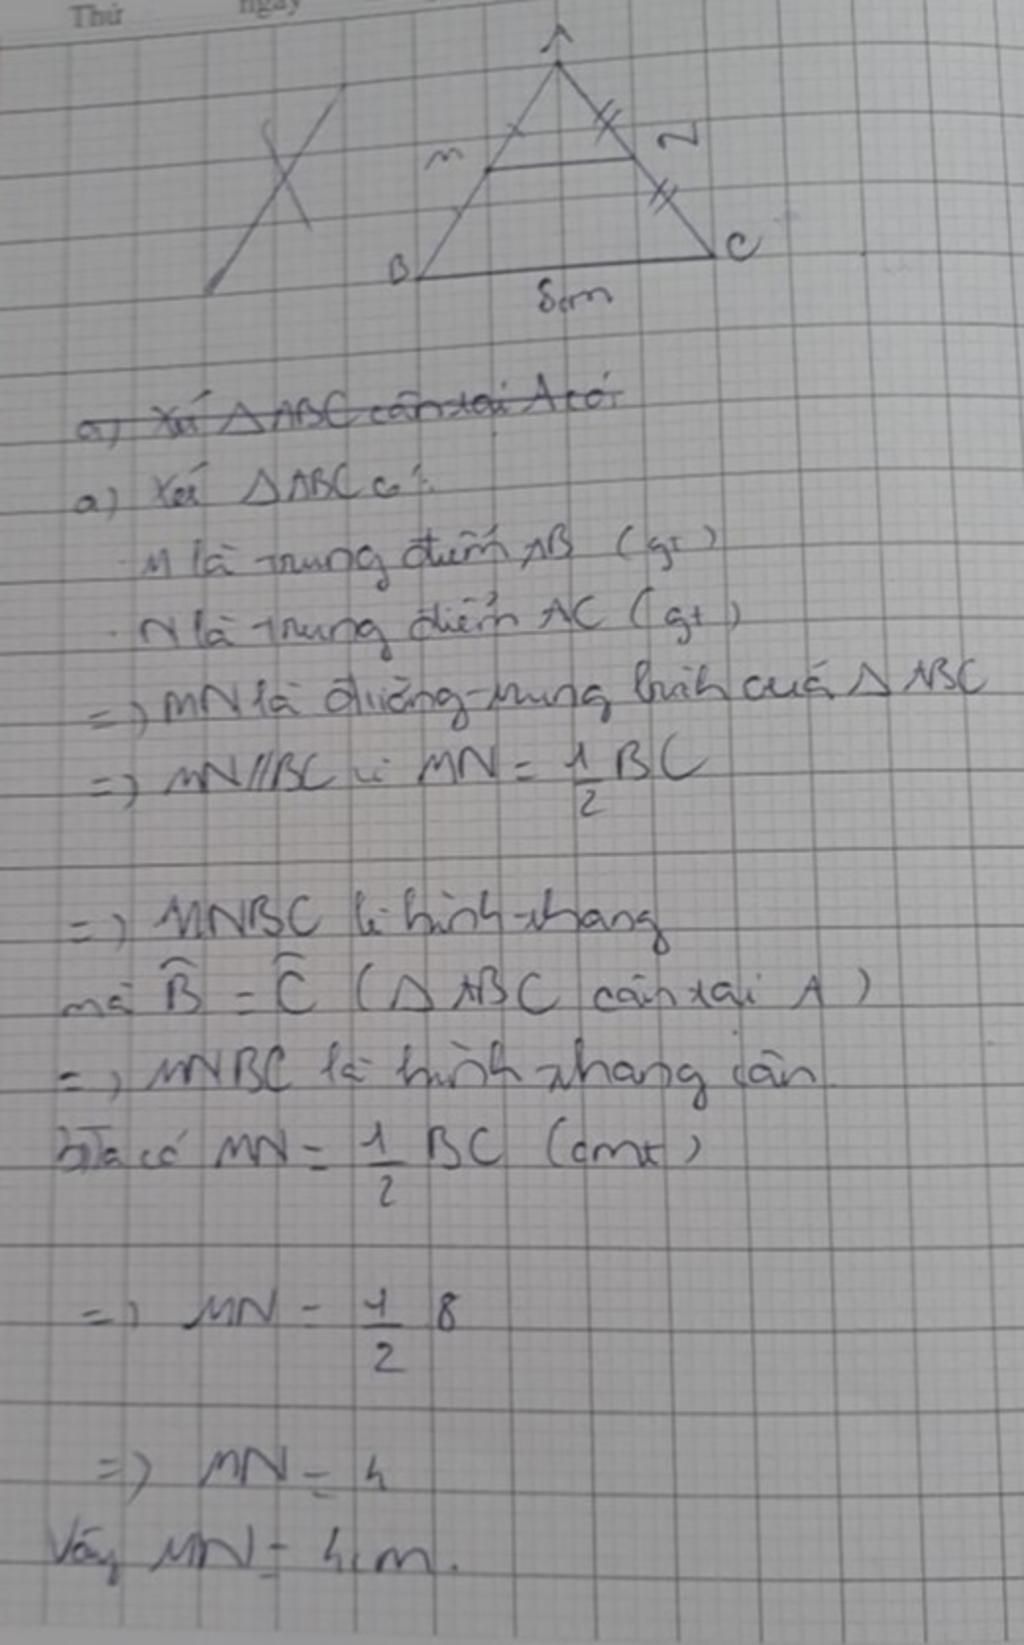 Thứ ngày
A
M N
B C
8cm
a) Xét ΔABC cân tại A có:
a) Xét ΔABC có:
M là trung điểm AB (gt)
N là trung điểm AC (gt)
=> MN là đường trung bình của ΔABC
=> MN//BC và MN = 1/2 BC
=> MNBC là hình thang
mà B̂ = Ĉ (ΔABC cân tại A)
=> MNBC là hình thang cân
b) Ta có MN = 1/2 BC (cmt)
=> MN = 1/2 8
=> MN = 4
Vậy MN = 4cm.